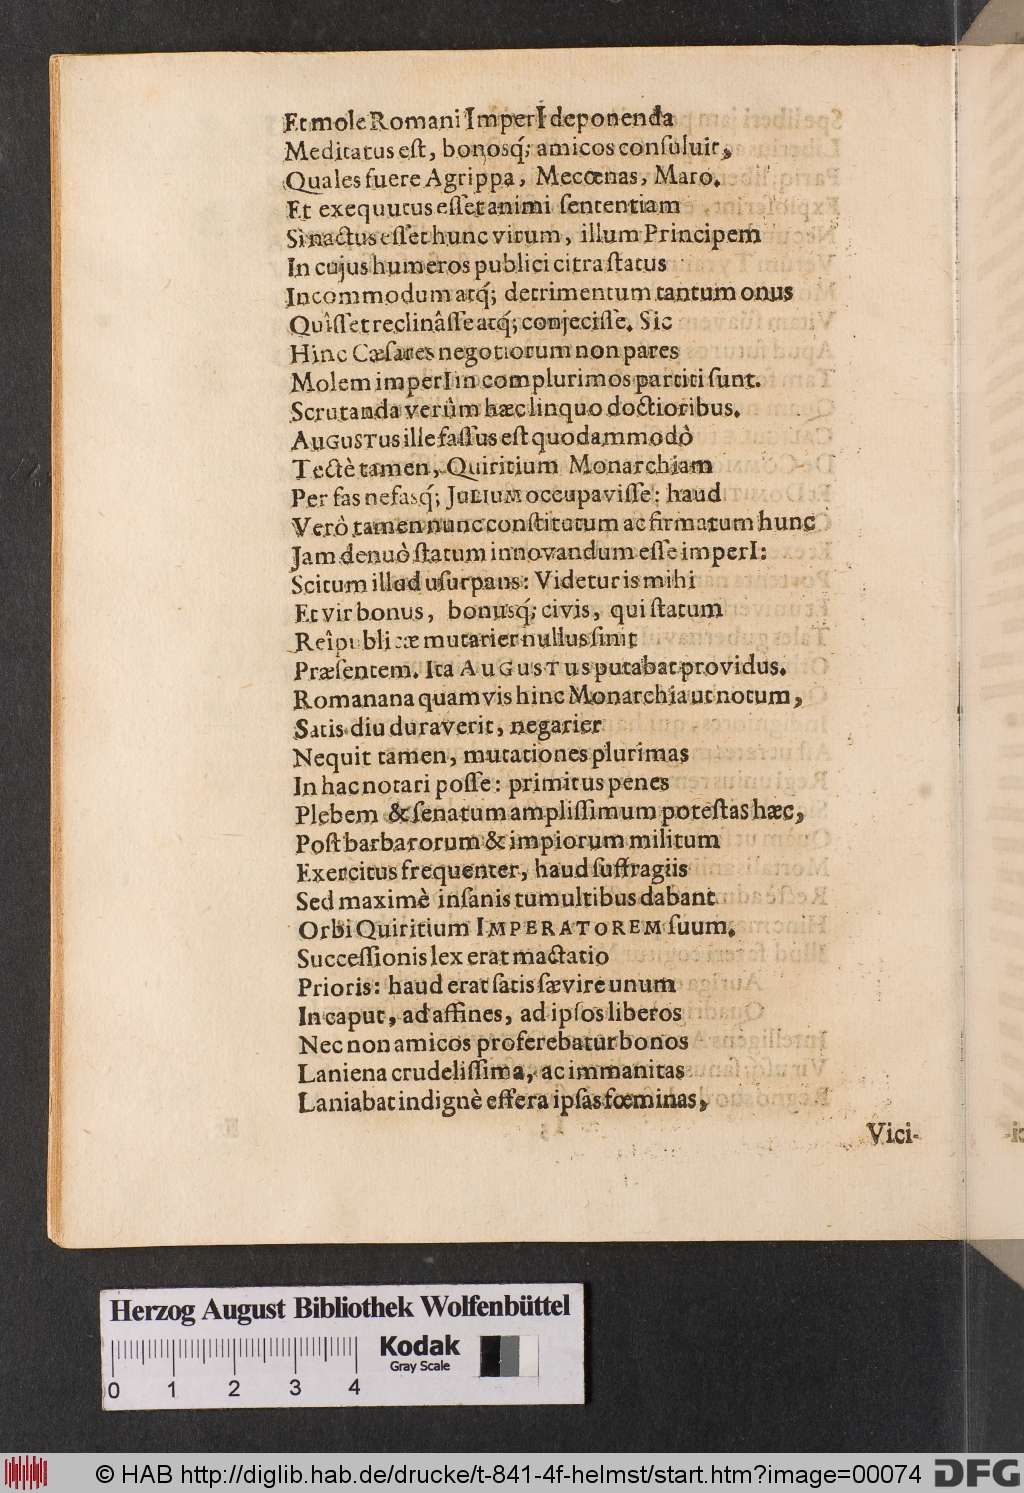 Et mole Romani ImperI deponenda
Meditatus eſt, bonosq́; amicos conſuluit,
Quales fuere Agrippa, Mecœnas, Maro.
Et exequutus eſſet animi ſententiam
Si nactus eſſet hunc virum, illum Principem
In cujus humeros publici citra ſtatus
Incommodum atq́; detrimentum tantum onus
Quîſſet reclinâſſe atq́; conjeciſſe. Sic
Hinc Cæſares negotiorum non pares
Molem imperI in complurimos partiti ſunt.
Scrutanda verûm hæc linquo doctioribus.
AUGUSTUS ille faſſus eſt quodammodò
Tectè tamen, Quiritium Monarchiam
Per fas nefasq́; JULIUM occupaviſſe: haud
Verò tamen nunc conſtitutum ac firmatum hunc
Jam denuò ſtatum innovandum eſſe imperI:
Scitum illud uſurpans: Videtur is mihi
Et vir bonus, bonusq́; civis, qui ſtatum
Reîpublicæ mutarier nullus ſinit
Præſentem. Ita AUGUSTUS putabat providus.
Romanana quamvis hinc Monarchia ut notum,
Satis diu duraverit, negarier
Nequit tamen, mutationes plurimas
In hac notari poſſe: primitus penes
Plebem & ſenatum ampliſſimum poteſtas hæc,
Poſt barbarorum & impiorum militum
Exercitus frequenter, haud ſuffragiis
Sed maximè inſanis tumultibus dabant
Orbi Quiritium IMPERATOREM ſuum.
Succeſſionis lex erat mactatio
Prioris: haud erat ſatis ſævire unum
In caput, ad affines, ad ipſos liberos
Nec non amicos proferebatur bonos
Laniena crudeliſſima, ac immanitas
Laniabat indignè effera ipſas fœminas,
Vici-
Herzog August Bibliothek Wolfenbüttel
Kodak
Gray Scale
0 1 2 3 4
© HAB http://diglib.hab.de/drucke/t-841-4f-helmst/start.htm?image=00074
DFG